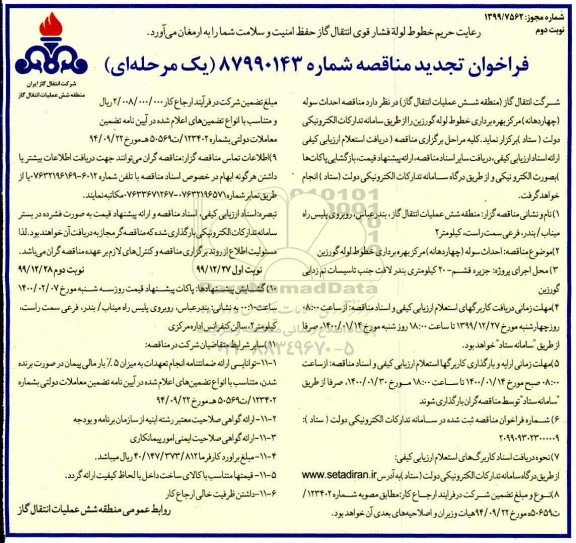 شماره مجوز: ۱۳۹۹/۷۵۶۲
نوبت دوم
رعایت حریم خطوط لولهٔ فشار قوی انتقال گاز حفظ امنیت و سلامت شما را به ارمغان می‌آورد.
شرکت انتقال گاز ایران
منطقه شش عملیات انتقال گاز
فراخوان تجدید مناقصه شماره ۸۷۹۹۰۱۴۳ (یک مرحله‌ای)
شرکت انتقال گاز (منطقه شش عملیات انتقال گاز) در نظر دارد مناقصه احداث سوله
(چهاردهانه) مرکز بهره برداری خطوط لوله گورزین را از طریق سامانه تدارکات الکترونیکی
دولت (ستاد) برگزار نماید. کلیه مراحل برگزاری مناقصه (دریافت استعلام ارزیابی کیفی
ارائه اسناد ارزیابی کیفی، دریافت سایر اسناد مناقصه، ارائه پیشنهاد قیمت، بازگشایی پاکات‌ها
)بصورت الکترونیکی و از طریق درگاه سامانه تدارکات الکترونیکی دولت (ستاد) انجام
خواهد گرفت.
۱)نام و نشانی مناقصه گزار: منطقه شش عملیات انتقال گاز، بندرعباس، روبروی پلیس راه
میناب/ بندر، فرعی سمت راست، کیلومتر۲
۲)موضوع مناقصه: احداث سوله (چهاردهانه) مرکز بهره برداری خطوط لوله گورزین
۳) محل اجرای پروژه: جزیره قشم- ۲۰ کیلومتری بندر لافت جنب تاسیسات نم زدایی
گورزین
۴)مهلت زمانی دریافت کاربرگهای استعلام ارزیابی کیفی و اسناد مناقصه: از ساعت ۰۸:۰۰
روز چهارشنبه مورخ ۱۳۹۹/۱۲/۲۷ تا ساعت ۱۸:۰۰ روز شنبه مورخ ۱۴۰۰/۰۱/۱۴، صرفا
از طریق "سامانه ستاد" خواهد بود.
۵)مهلت زمانی ارایه و بارگذاری کاربرگها استعلام ارزیابی کیفی و اسناد مناقصه: از ساعت
۰۸:۰۰ صبح مورخ ۱۴۰۰/۰۱/۱۴ تا ساعت ۱۸:۰۰ مورخ ۱۴۰۰/۰۱/۳۰، صرفا از طریق
"سامانه ستاد" توسط مناقصه گران بارگذاری شوند
۶) شماره فراخوان مناقصه ثبت شده در سامانه تدارکات الکترونیکی دولت (ستاد):
۲۰۹۹۰۹۳۰۲۳۰۰۰۰۰۹
۷)نحوه دریافت اسناد کاربرگ‌های استعلام ارزیابی کیفی:
از طریق درگاه سامانه تدارکات الکترونیکی دولت (ستاد) به آدرس www.setadiran.ir
۸)نوع و مبلغ تضمین شرکت در فرایند ارجاع کار: مطابق مصوبه شماره ۱۲۳۴۰۲/
ت۵۰۶۵۹ه مورخ ۹۴/۰۹/۲۲ هیات وزیران و اصلاحیه‌های بعدی آن خواهد بود.
مبلغ تضمین شرکت در فرآیند ارجاع کار ۲/۰۰۸/۰۰۰/۰۰۰ ریال
و متناسب با انواع تضمین‌های اعلام شده در آیین نامه تضمین
معاملات دولتی بشماره ۱۲۳۴۰۲/ت۵۰۵۶۹هـ مورخ ۹۴/۰۹/۲۲
۹)اطلاعات تماس مناقصه گزار: مناقصه گران می‌توانند جهت دریافت اطلاعات بیشتر یا
داشتن هرگونه ابهام در خصوص اسناد مناقصه با تلفن شماره ۶۰۱۲-۰۷۶۳۲۱۹۶۱۶۹ یا از
طریق نمابر شماره ۰۷۶۳۲۱۹۶۵۷۱-۰۷۶۳۳۶۷۱۲۶۷ مکاتبه نمایند.
تبصره: اسناد ارزیابی کیفی، اسناد مناقصه و ارائه پیشنهاد قیمت به صورت فشرده در بستر
سامانه تدارکات الکترونیکی بارگذاری شده که مناقصه گر مجاز به دریافت آن خواهند بود. لذا
مسئولیت اطلاع از روند برگزاری مناقصه و کنترل‌های لازم بر عهده مناقصه گران می‌باشد.
نوبت اول ۹۹/۱۲/۲۷ نوبت دوم ۹۹/۱۲/۲۸
۱۰) گشایش پیشنهادها: پاکات پیشنهاد قیمت روز سه شنبه مورخ ۱۴۰۰/۰۲/۰۷
ساعت ۱۰:۰۰ به نشانی: بندرعباس، روبروی پلیس راه میناب/ بندر، فرعی سمت راست،
کیلومتر۲، سالن کنفرانس اداره مرکزی
۱۱)سایر شرایط متقاضیان شرکت در مناقصه:
۱-۱۱-توانایی ارائه ضمانتنامه انجام تعهدات به میزان ۵٪ بار مالی پیمان در صورت برنده
شدن، متناسب با انواع تضمین‌های اعلام شده در آیین نامه تضمین معاملات دولتی بشماره
۱۲۳۴۰۲/ت۵۰۵۶۹هـ مورخ ۹۴/۰۹/۲۲
۲-۱۱-ارائه گواهی صلاحیت معتبر رشته ابنیه از سازمان برنامه و بودجه
۳-۱۱-ارائه گواهی صلاحیت ایمنی امور پیمانکاری
۴-۱۱-مبلغ برآورد کارفرما ۴۰/۱۴۷/۳۷۳/۸۱۲ ریال میباشد.
۵-۱۱-قیمتها متناسب با کالای ساخت داخل با لحاظ کیفیت ارائه گردد.
۶-۱۱-داشتن ظرفیت خالی ارجاع کار
روابط عمومی منطقه شش عملیات انتقال گاز